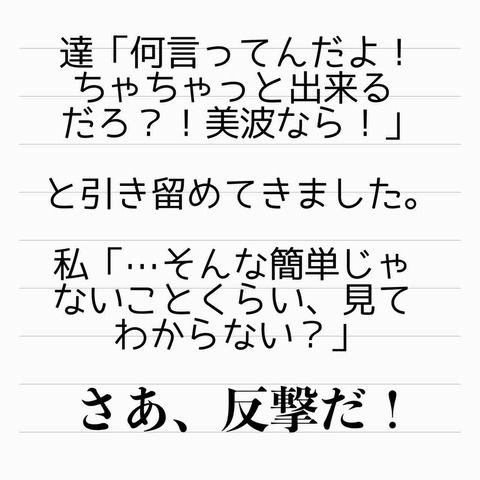 達「何言ってんだよ！
ちゃちゃっと出来る
だろ？！美波なら！」
と引き留めてきました。
私「…そんな簡単じゃ
ないことくらい、見て
わからない？」
さあ、反撃だ！